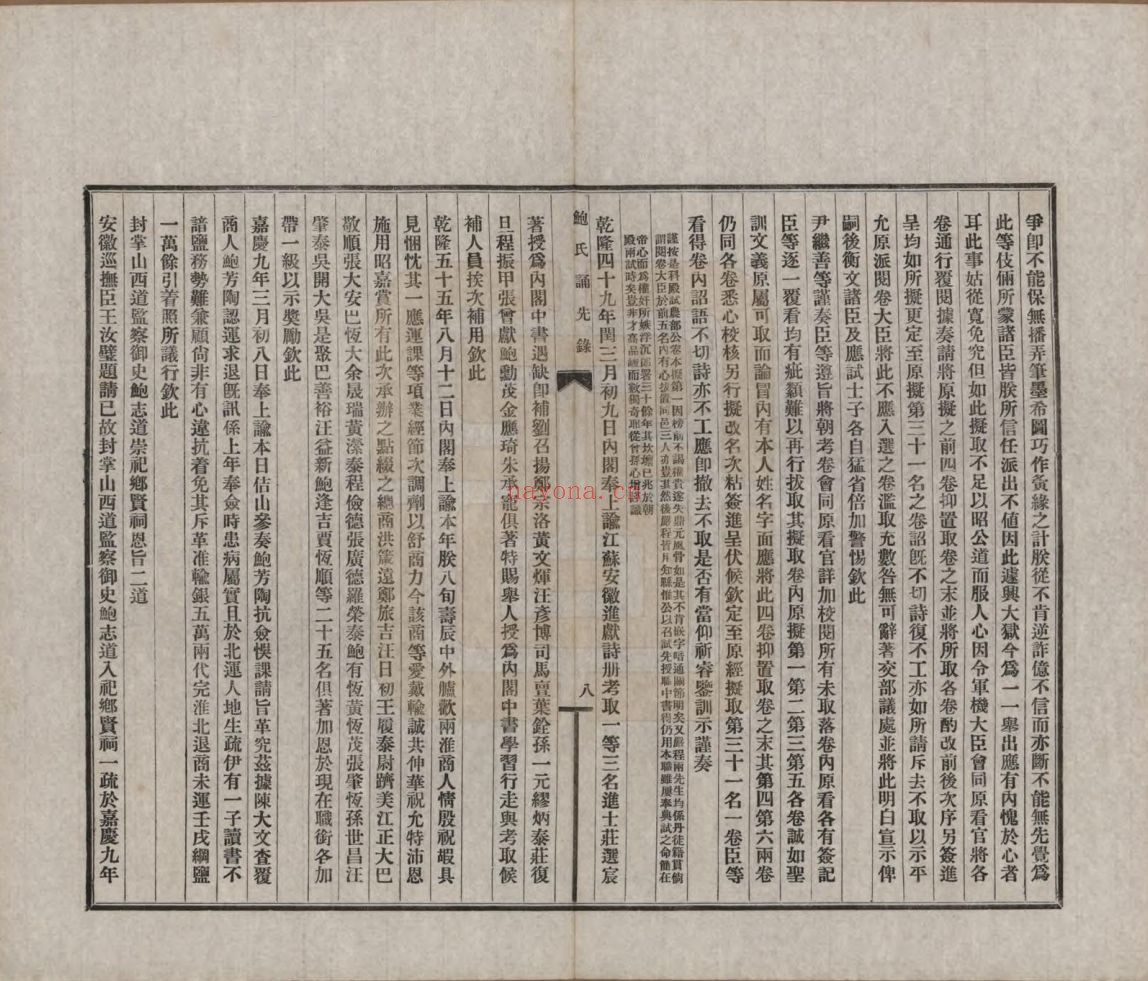 爭卽不能保無播弄筆墨希圖巧作夤緣之計朕從不肯逆詐億不信而亦斷不能無先覺爲
此等伎倆所蒙諸臣皆朕所信任派出不値因此遽興大獄今爲一一舉出應有內愧於心者
耳此事姑從寬免究但如此擬取不足以昭公道而服人心因令軍機大臣會同原看官將各
卷通行覆閱據奏請將原擬之前四卷抑置取卷之末並將所取各卷酌改前後次序另簽進
呈均如所擬更定至原擬第三十一名之卷詔旣不切詩復不工亦如所請斥去不取以示平
允原派閱卷大臣將此不應入選之卷濫取充數咎無可辭著交部議處並將此明白宣示俾
嗣後衡文諸臣及應試士子各自猛省倍加警惕欽此
尹繼善等謹奏臣等遵旨將朝考卷會同原看官詳加校閱所有未取落卷內原看各有簽記
臣等逐一覆看均有疵纇難以再行拔取其擬取卷內原擬第一第二第三第五各卷誠如聖
訓文義原屬可取而論冒內有本人姓名字面應將此四卷抑置取卷之末其第四第六兩卷
仍同各卷悉心校核另行擬改名次粘簽進呈伏候欽定至原經擬取第三十一名一卷臣等
看得卷內詔語不切詩亦不工應卽撤去不取是否有當仰祈睿鑒訓示謹奏
謹按是科殿試農部公卷本擬第一因榜前不謁權貴遂失鼎元風骨如是其不肯嵌字唔通關節明矣又嚴程兩先生均係丹徒籍貫倘
訓閱卷大臣於前五名內有心拔置同邑三人亦豈其然後嚴程皆用知縣惟公以召試先授職中書得仍用本職雖屢奉典試之命簡在
帝心而爲權奸所嫉浮沉部署三十餘年其坎壈已兆於朝
殿兩試時矣豈非才高品端而數獨奇耶從曾孫心增謹識
乾隆四十九年閏三月初九日內閣奉上諭江蘇安徽進獻詩册考取一等三名進士莊選宸
鮑氏誦先錄
八
著授爲內閣中書遇缺卽補劉召揚鄭宗洛黃文煇汪彥博司馬亶葉銓孫一元繆炳泰莊復
旦程振甲張曾獻鮑勳茂金應琦朱承寵俱著特賜舉人授爲內閣中書學習行走與考取候
補人員挨次補用欽此
乾隆五十五年八月十二日內閣奉上諭本年朕八旬壽辰中外臚歡兩淮商人情殷祝嘏具
見悃忱其一應運課等項業經節次調劑以舒商力今該商等愛戴輸誠共伸華祝允特沛恩
施用昭嘉賞所有此次承辦之點綴之總商洪箴遠鄭旅吉汪日初王履泰尉躋美江正大巴
敬順張大安巴恆大余晟瑞黃瀠泰程儉德張廣德羅榮泰鮑有恆黃恆茂張肇恆孫世昌汪
肇泰吳開大吳是聚巴善裕汪益新鮑逢吉賈恆順等二十五名俱著加恩於現在職銜各加
帶一級以示獎勵欽此
嘉慶九年三月初八日奉上諭本日佶山參奏鮑芳陶抗僉悞課請旨革究茲據陳大文查覆
商人鮑芳陶認運求退旣訊係上年奉僉時患病屬實且於北運人地生疏伊有一子讀書不
諳鹽務勢難兼顧尙非有心違抗着免其斥革准輸銀五萬兩代完淮北退商未運壬戌綱鹽
一萬餘引着照所議行欽此
封掌山西道監察御史鮑志道崇祀鄕賢祠恩旨二道
安徽巡撫臣王汝璧題請已故封掌山西道監察御史鮑志道入祀鄕賢祠一疏於嘉慶九年
nayona.cn